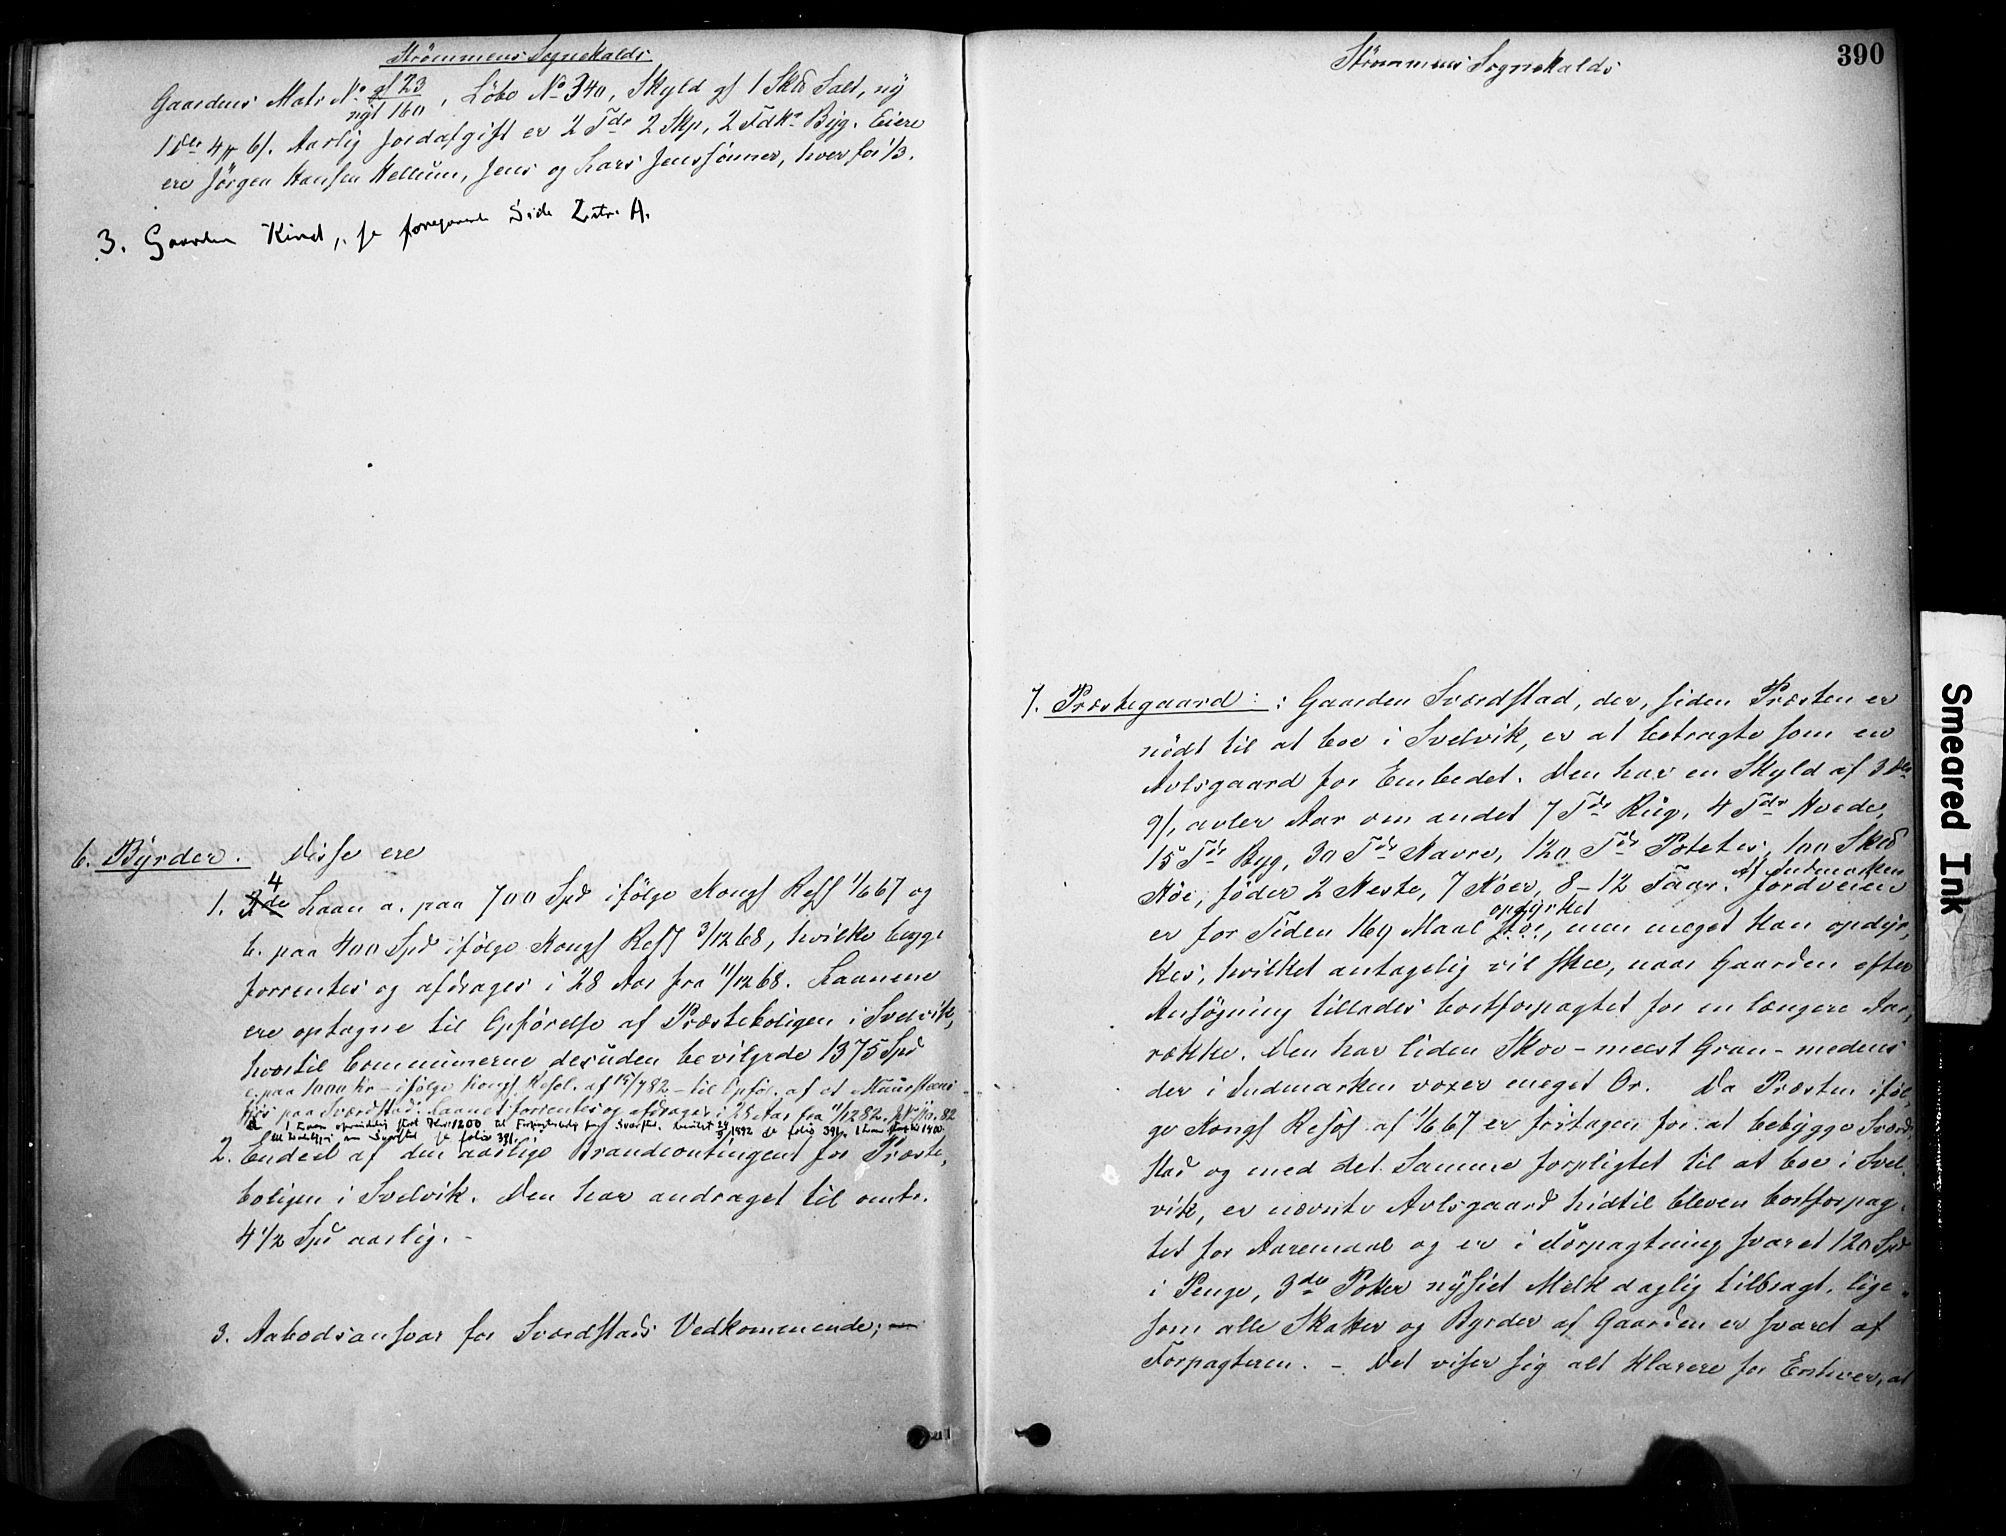 Strømmens Sognekalds
Gaardens Matr No gl 23 / nyt 160, Löbe No 340, Skyld gl 1 Skd Salt, ny
1 Dlr 4 ₰ 6 ſ. Aarlig Jordafgift er 2 Tdr 2 Skp, 2 Fdkr Byg. Eiere
ere Jörgen Hansen Hellum, Jens og Lars Jenssönner, hver for 1/3.
3. Gaarden Kind, se foregaaende Side Litr. A.
6. Byrder. Disse ere
1. 4 Laan a. paa 700 Spd ifölge Kongl Resl 1/6 67 og
b. paa 400 Spd ifölge Kongl Resl 3/12 68, hvilke begge
forrentes og afdrages i 28 Aar fra 11/12 68. Laanene
ere optagne til Opförelse af Præsteboligen i Svelvik,
hvortil Communerne desuden bevilgede 1375 Spd
c. paa 1000 Kr - ifölge Kongl. Resol. af 15/7 82 - til Opför. af et
paa Sværdstad. Laanet forrentes og afdrages i 28 Aar fra 11/12 82.
d. 1 Laan oprindelig stort Kr. 1200 til
se folio 391.
2. Endeel af den aarlige Brandcontingent for Præste,
boligen i Svelvik. Den har andraget til omtr.
4 1/2 Spd aarlig. -
3. Aabodsansvar for Sværdstads Vedkommende; —
Strømmens Sognekalds
390
7. Præstegaard: Gaarden Sværdstad, der, siden Præsten er
nödt til at boe i Svelvik, er at betragte som en
Avlsgaard for Embedet. Den har en Skyld af 3 Dlr
9 ſ, avler Aar om andet 7 Tdr Rug, 4 Tdr Hvede,
15 Tdr Byg, 30 Tdr Havre, 120 Tdr Poteter, 100 Skd
Höe, föder 2 Heste, 7 Köer, 8 - 12 Faar. Af Indmarken Jordveien
er for Tiden 169 Maal opdyrket, men meget kan opdyr,
kes, hvilket antagelig vil skee, naar Gaarden efter
Ansögning tillades bortforpagtet for en længere Aar,
række. Den har liden Skov - meest Gran - medens
der i Indmarken voxer meget Or. Da Præsten iföl,
ge Kongl Resol. af 1/6 67 er fritagen for at bebygge Sværd,
stad og med det Samme forpligtet til at boe i Svel,
vik, er nævnte Avlsgaard hidtil bleven bortforpag,
tet for Aaremaal og er i Forpagtning svaret 120 Spd
i Penge, 3de Potter nysiet Melk daglig tilbragt, lige,
som alle Skatter og Byrder af Gaarden er svaret af
Forpagteren. - Det viser sig alt klarere for Enhver, at
Smeared Ink